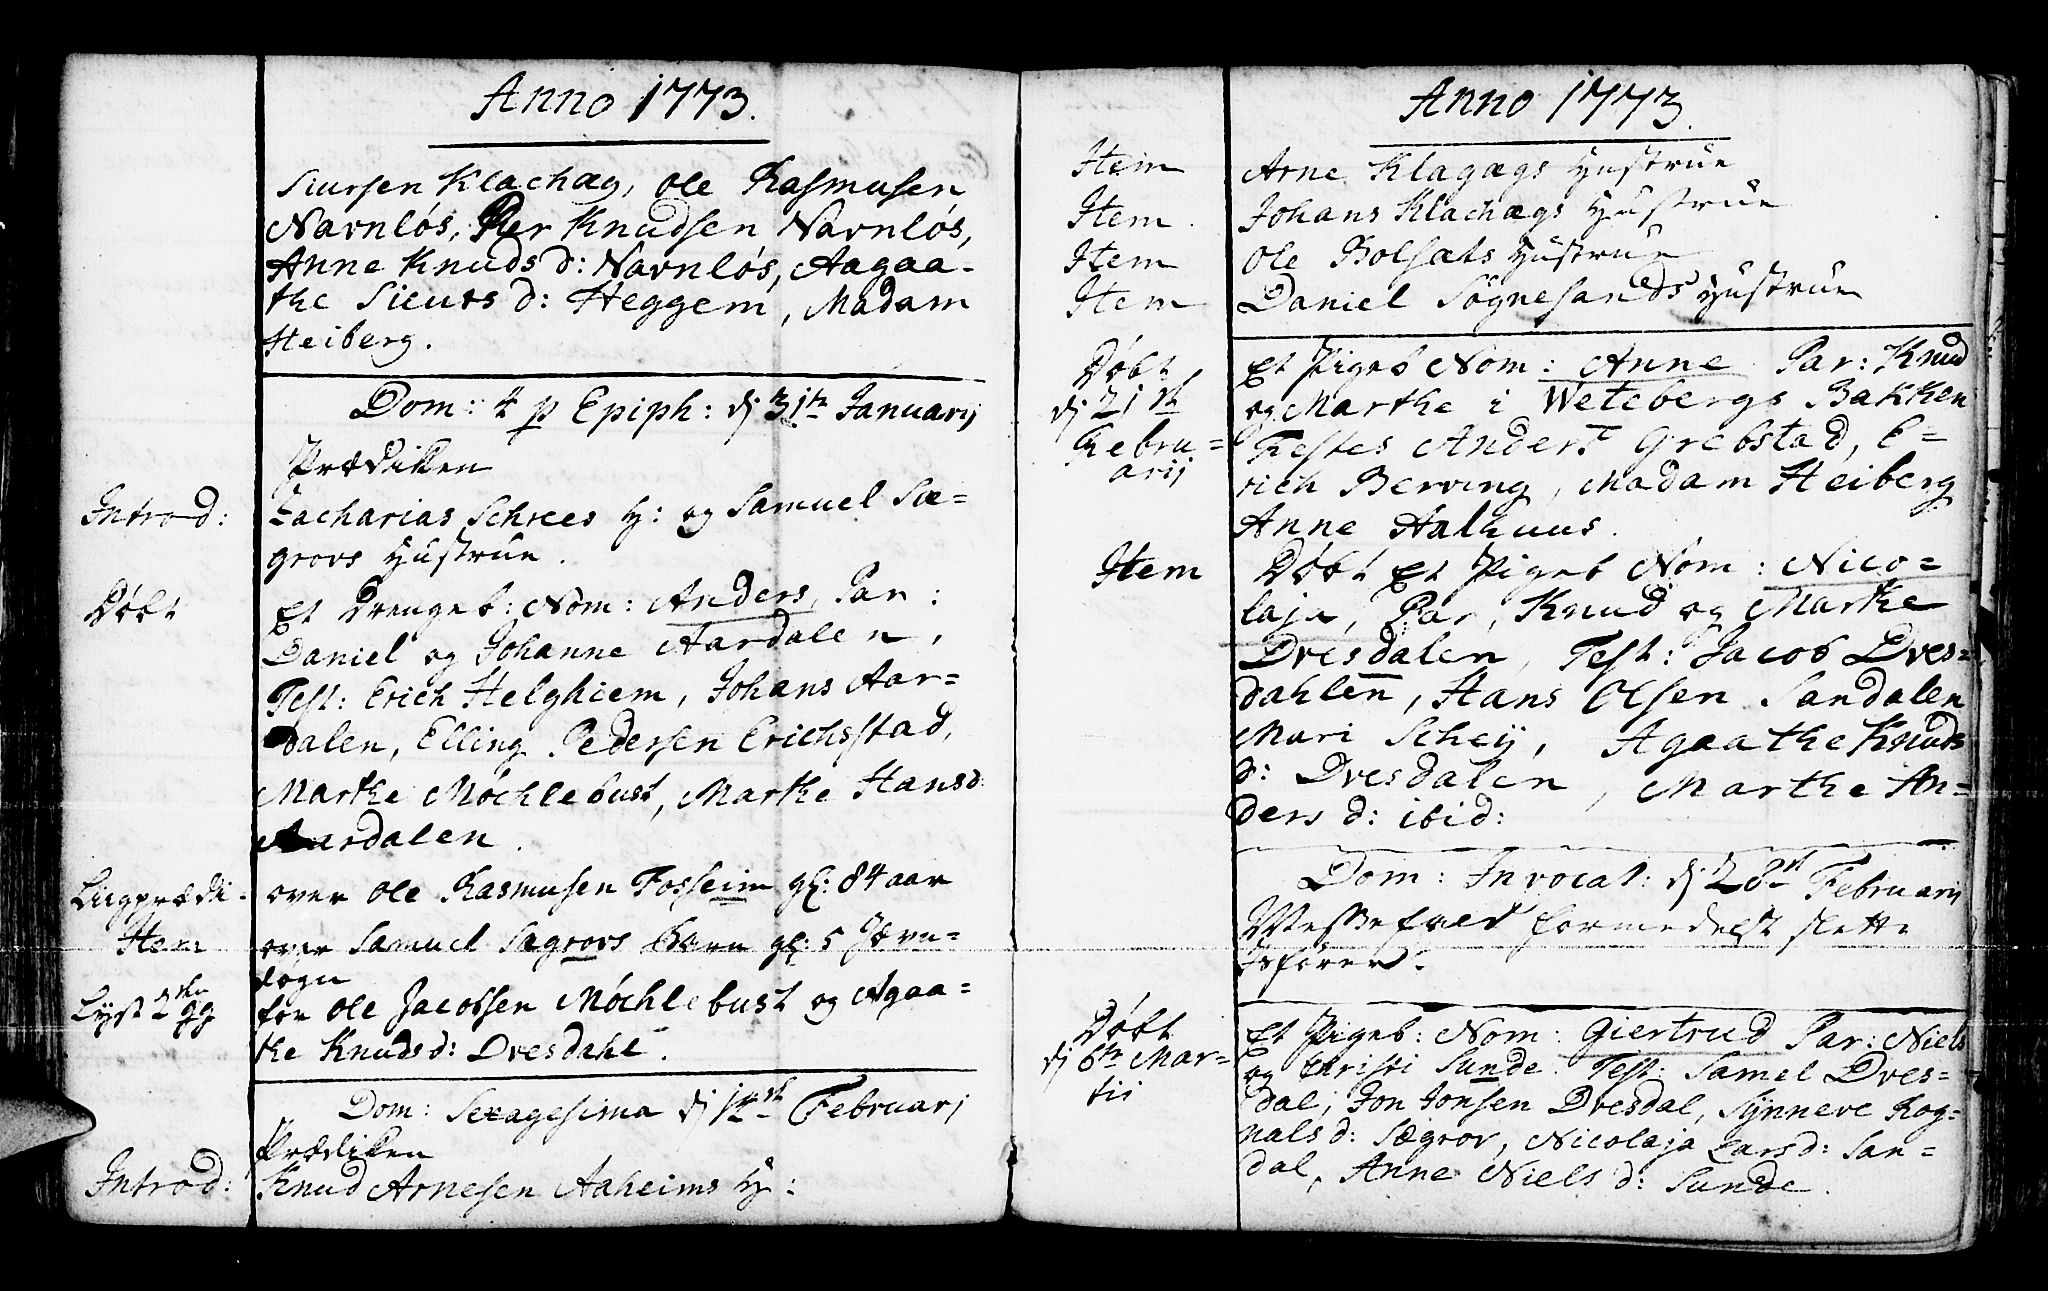 Anno 1773.
Siursen Klachæg, Ole Rasmusen
Navnløs, Per Knudsen Navnløs,
Anne Knuds d: Navnløs, Aagaa-
the Siurs d: Heggem, Madam
Heiberg.
Dom: 4 p Epiph: dj 31te Januarij
Prædiken
Introd: Zacharias Schrees H: og Samuel Sæ-
grovs Hustrue.
Døbt Et Drengeb: Nom: Anders, Par:
Daniel og Johanne Aardalen,
Test: Erich Helghiem, Johans Aar-
dalen, Elling Pedersen Erichsstad,
Marthe Møchlebust, Marthe Hansd:
Aardalen.
Liigprædi- over Ole Rasmusen Fosseim gl: 84 aar
Item over Samuel Sægrovs Barn gl: 5 Jævn-
døgn
Lyst 2den gg for Ole Jacobsen Møchlebust og Agaa-
the Knuds d: Dvesdahl.
Dom: Sexagesima dj 14de Februarj
Prædiken
Introd: Knud Arnesen Aaheims H:
Anno 1773.
Item Arne Klagægs Hustrue
Item. Johans Klachægs Hustrue
Item Ole Bolsæts Hustrue
Item Daniel Søgnesands Hustrue
Døbt Et Pigeb Nom: Anne Par: Knud
dj 21de og Marthe i Wetebergs Bakken
Febru- Testes Anders Grebstad, E-
arij rich Berving, Madam Heiberg
Anne Aalhuus.
Item Døbt Et Pigeb Nom: Nico-
laja, Par, Knud og Marthe
Dvesdalen, Test: Jacob Dves-
dahlen, Hans Olsen Sandalen
Mari Scheij, Agaathe Knuds
d: Dvesdalen, Marthe An-
ders d: ibid:
Dom: Invocat: dj 28de Februarij
Messefald formedelst slette
Isføre.
Døbt Et Pigeb: Nom: Giertrud Par: Niels
dj 6te Mar- og Christi Sunde. Test: Samel Dves-
tii dal, Jon Jonsen Dvesdal, Synneve Rog-
nals d: Sægrov, Nicolaja Lars d: San-
dal, Anne Niels d: Sunde.